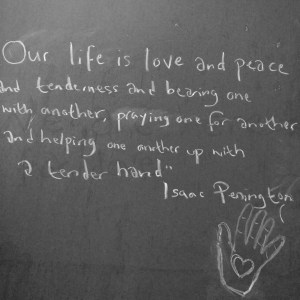 Our life is love and peace
and tenderness and bearing one
with another, praying one for another
and helping one another up with
a tender hand"
Isaac Penington